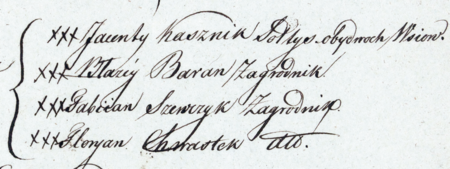 xxx Jacenty Kasznik Sołtys obydwoch Wsiow.
xxx Błazéy Baran Zagrodnik
xxx Fabiian Szewczyk Zagrodnik
xxx Floryan Chwastek dtto.